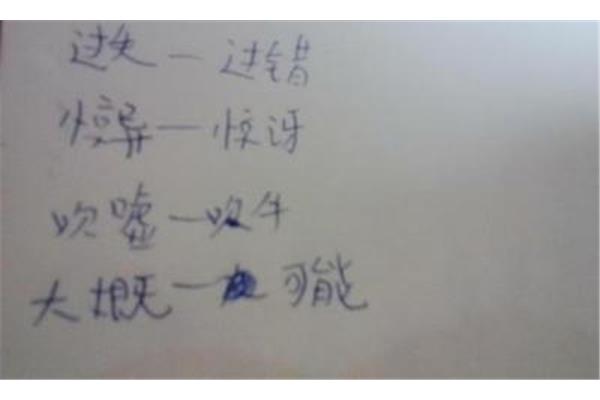 过失—过错
惊异—惊讶
吹嘘—吹牛
大概—可能